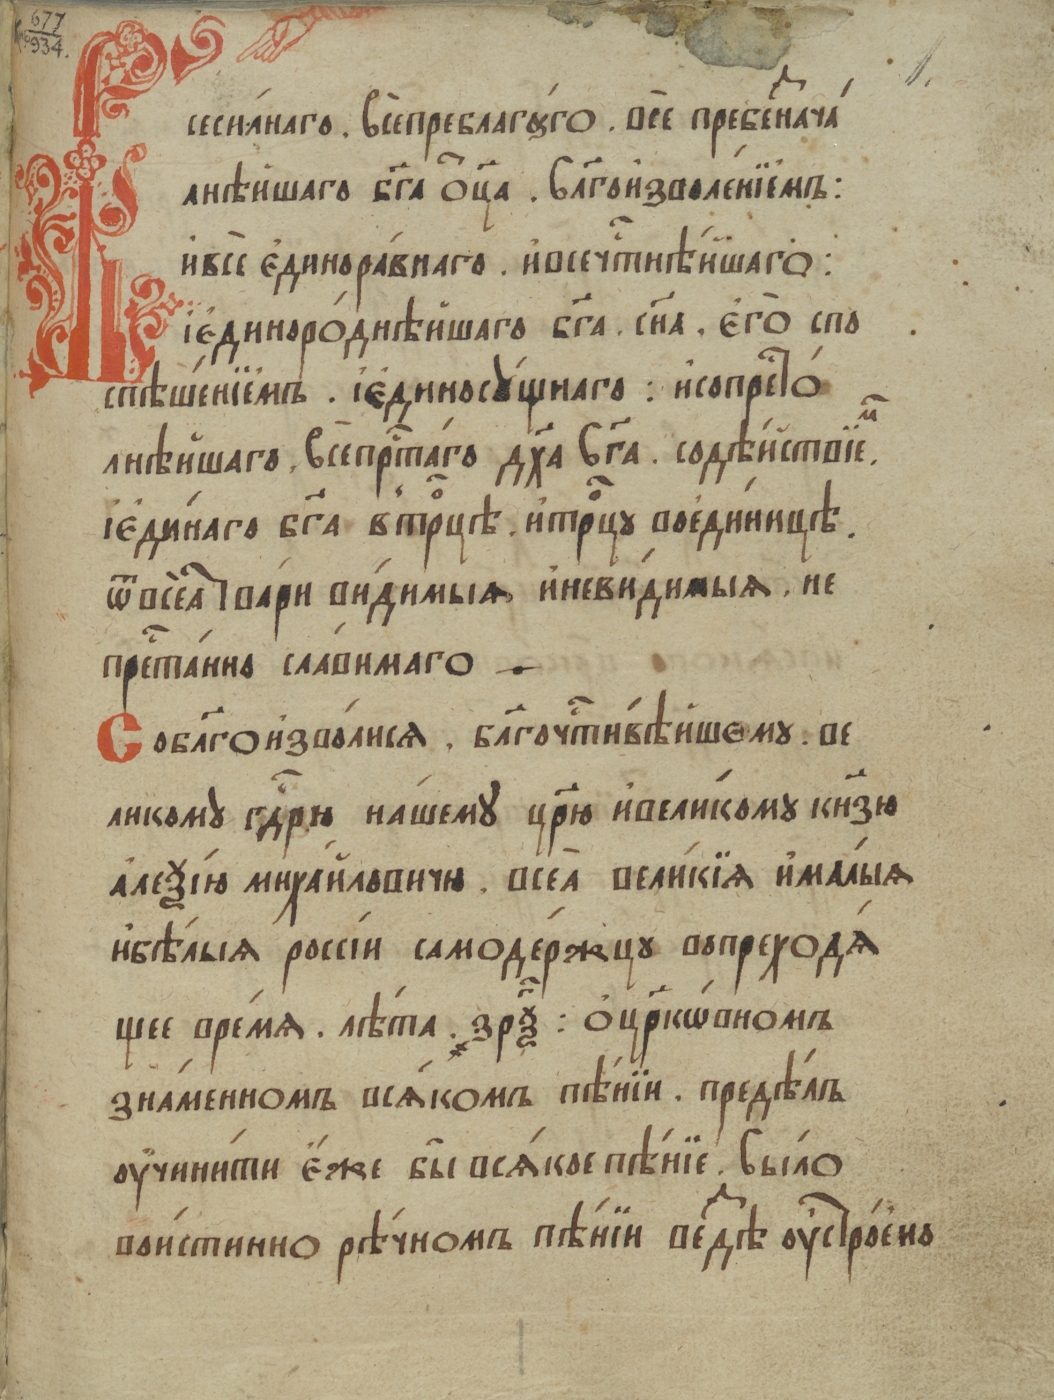 677
934.
1.
Всеси́лнаго . всепреблага́го . все пребезнача́
лнѣйшаго бг҃а ѻц҃а . блг҃оизволе́нїемъ :
и҆все є҆динора́внаго . и҆всечⷭ҇тнѣйшаго :
і҆є҆диноро́днѣйшаго бг҃а . сн҃а . є҆гѡ спо
спѣше́нїемъ . і҆є҆диносꙋ́щнаго : и҆сопрⷭ҇то́
лнѣйшаго , всепрⷭ҇та́го дх҃а бг҃а . содѣ́йствїеⷨ .
і҆є҆ди́наго бг҃а вътрⷪ҇цѣ . и҆трⷪ҇цу воеди́ницѣ .
ѿ всеѧ̀ тва́ри ви́димыѧ и҆неви́димыѧ . не
прⷭ҇та́нно сла́вимаго .
Соблг҃оизво́лисѧ , блг҃очⷭ҇тивѣ́йшему . ве
ликомꙋ гдⷭ҇рю на́шемꙋ цр҃ю и҆вели́кому кн҃зю
а҆леѯі́ю миха́йловичю . всеѧ̀ вели́кїѧ и҆ма́лыѧ
и҆бѣ́лыѧ россі́и самоде́ржцу вопреходѧ́
щее вре́мѧ . лѣ́та . ҂зрѯ҃ : ѻ҆цр҃кѡ́вномъ
зна́менномъ всѧ́комъ пѣ́нїи . предѣ́лъ
оу҆чини́ти є҆́же бы всѧ́кое пѣ́нїе . бы́ло
вои́стинно рѣ́чномъ пѣ́нїи везⷣѣ оу҆стро́ено